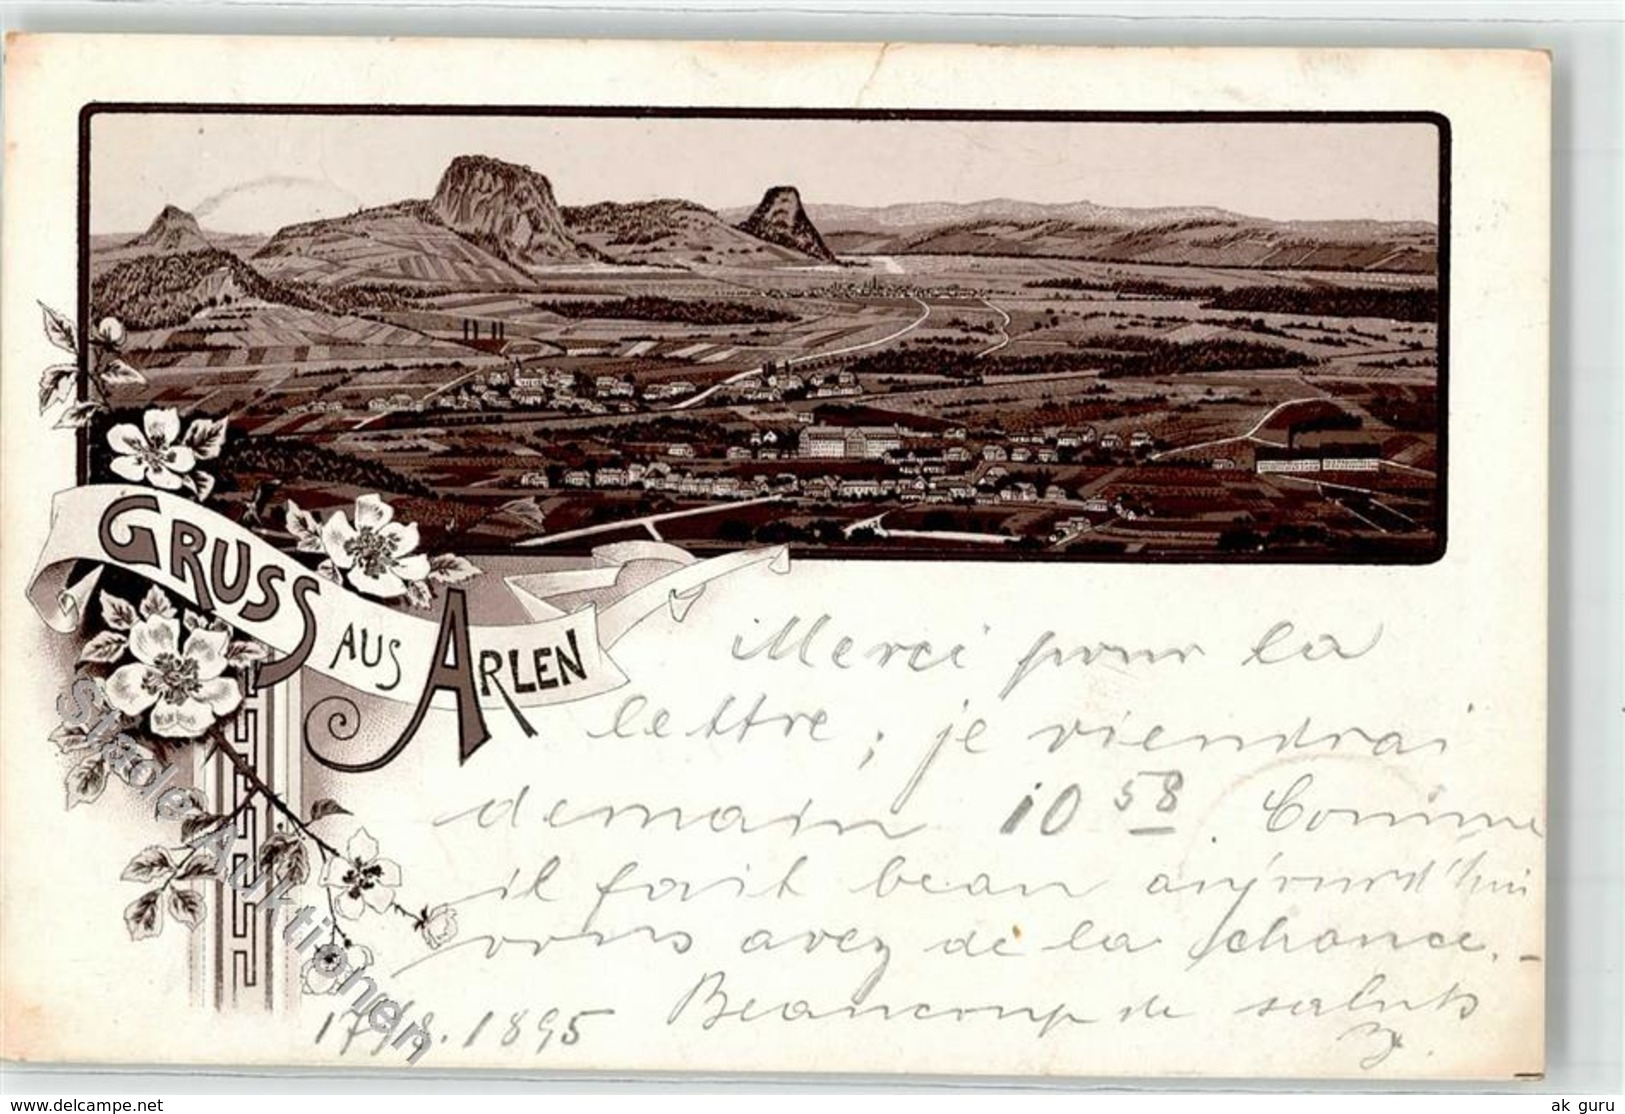 GRUSS AUS ARLEN
Merci pour la
lettre; je viendrai
demain 10 58. Comme
il fait beau aujourd'hui
vous avez de la chance. –
Beaucoup de saluts
17/8. 1895
Stade Auktionen
www.delcampe.net
ak guru